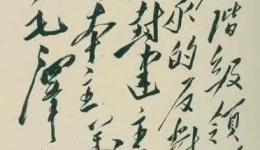 階級領
的反對
封建主
本主義
毛澤